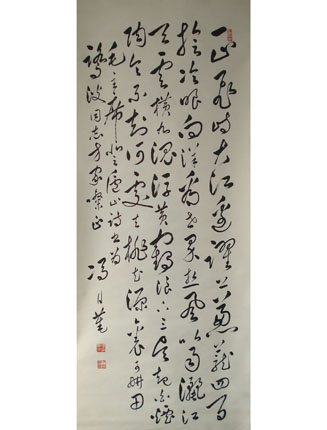 一山飞峙大江边躍上葱茏四百
旋冷眼向洋看世界热风吹雨灑江
天云横九派浮黄鹤浪下三吴起白烟
陶令不知何处去桃花源里可耕田
毛主席登庐山诗书为
波同志方家正
冯月